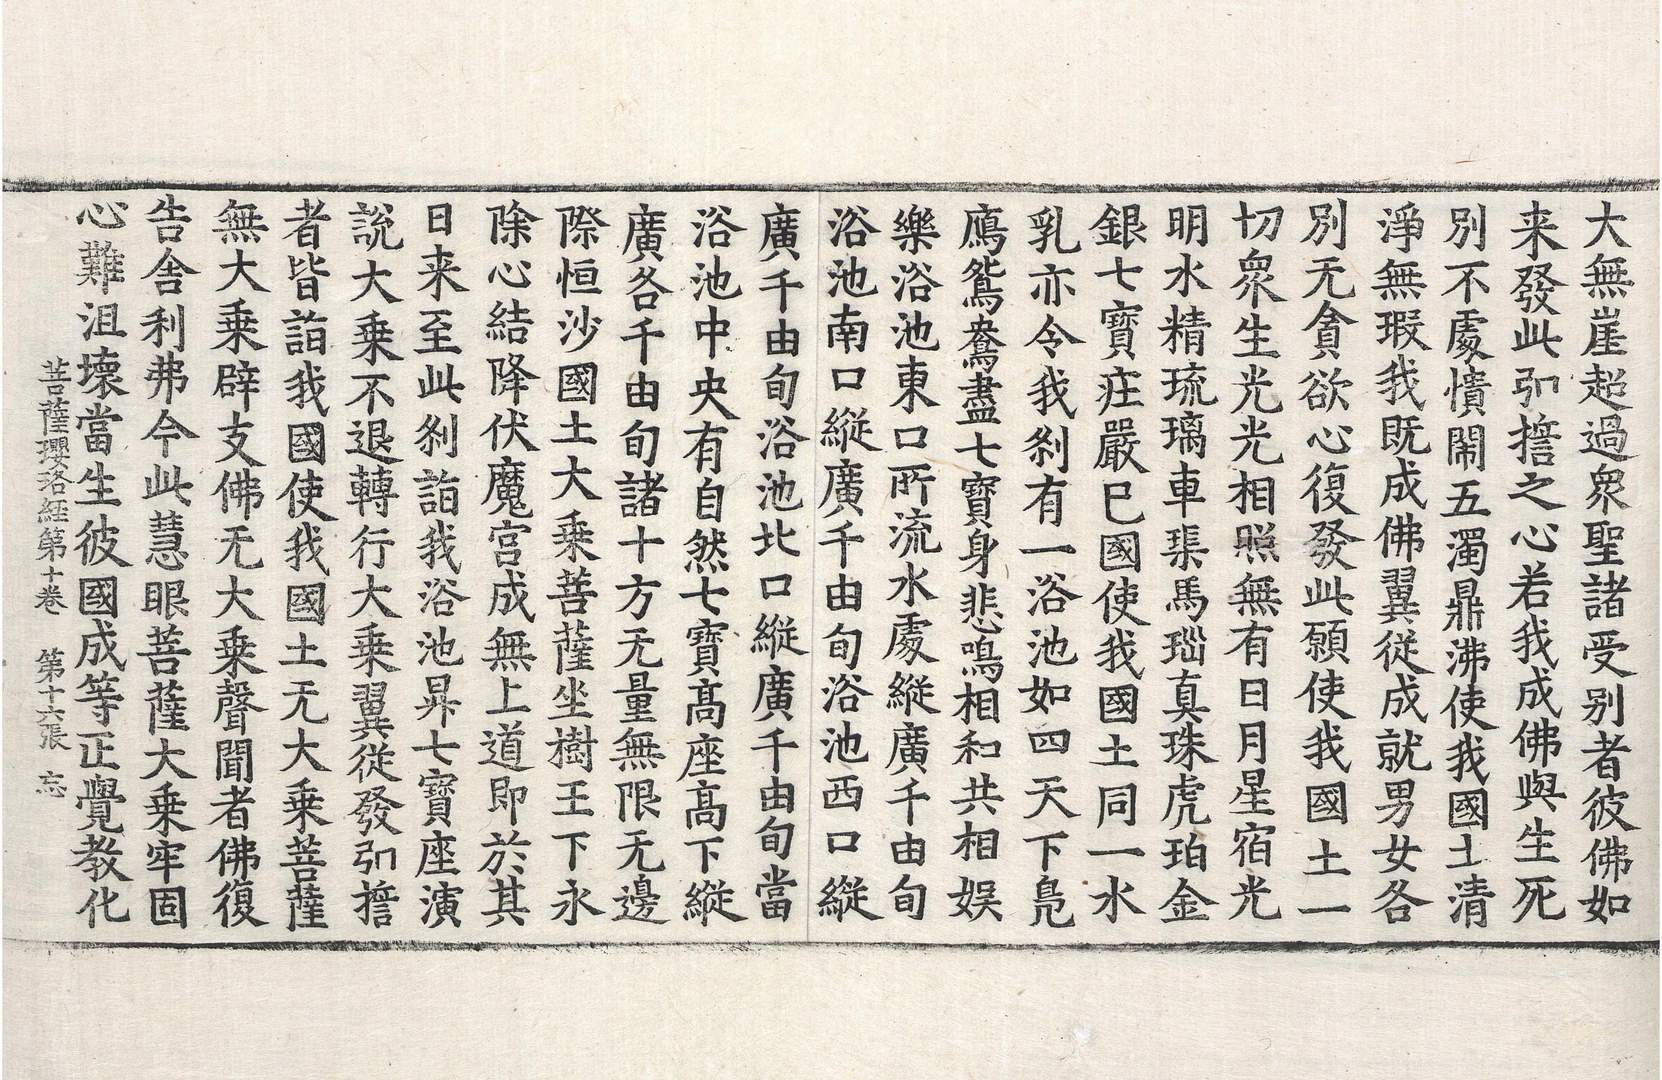 大無崖超過衆聖諸受别者彼佛如
来發此弘擔之心若我成佛與生死
别不處憒閙五濁鼎沸使我國土清
淨無瑕我既成佛翼従成就男女各
别无貪欲心復發此願使我國土一
切衆生光光相照無有日月星宿光
明水精琉璃車璖馬瑙真珠虎珀金
銀七寶庄嚴巳國使我國土同一水
乳亦令我刹有一浴池如四天下鳧
鴈鴛鴦盡七寶身悲鳴相和共相娱
樂浴池東口所流水處縱廣千由旬
浴池南口縱廣千由旬浴池西口縱
廣千由旬浴池北口縱廣千由旬當
浴池中央有自然七寶髙座髙下縱
廣各千由旬諸十方无量無限无邊
際恒沙國土大乗菩薩坐樹王下永
除心結降伏魔宫成無上道即於其
日来至此刹詣我浴池昇七寶座演
說大乗不退轉行大乗翼従發弘擔
者皆詣我國使我國土无大乗菩薩
無大乗辟支佛无大乗聲聞者佛復
告舍利弗今此慧眼菩薩大乗牢固
心難沮壞當生彼國成等正覺教化
菩薩瓔珞經第十卷 第十六張 忘